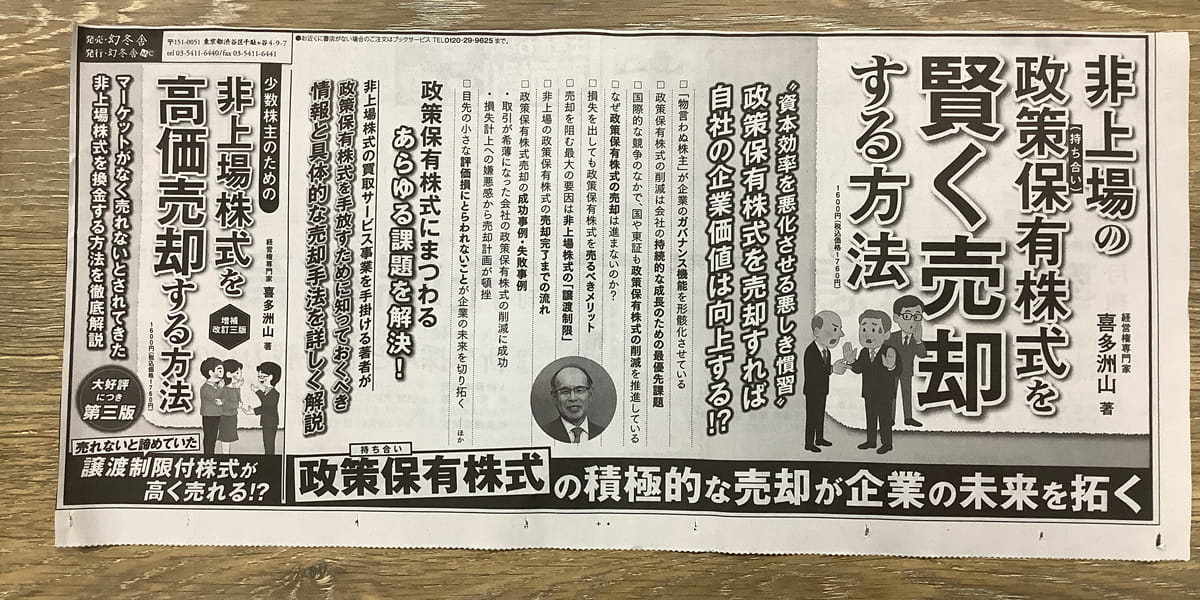 非上場の
政策保有株式を
持ち合い
賢く売却
する方法
1600円(税込価格1760円)
経営権専門家
喜多洲山 著
“資本効率を悪化させる悪しき慣習”
政策保有株式を売却すれば
自社の企業価値は向上する!?
□「物言わぬ株主」が企業のガバナンス機能を形骸化させている
□政策保有株式の削減は会社の持続的な成長のための最優先課題
□国際的な競争のなかで、国や東証も政策保有株式の削減を推進している
□なぜ政策保有株式の売却は進まないのか?
□損失を出しても政策保有株式を売るべきメリット
□売却を阻む最大の要因は非上場株式の「譲渡制限」
□非上場の政策保有株式の売却完了までの流れ
□政策保有株式売却の成功事例・失敗事例
・取引が希薄になった会社の政策保有株式の削減に成功
・損失計上への嫌悪感から売却計画が頓挫
□目先の小さな評価損にとらわれないことが企業の未来を切り拓く ……ほか
政策保有株式にまつわる
あらゆる課題を解決!
非上場株式の買取サービス事業を手掛ける著者が
政策保有株式を手放すために知っておくべき
情報と具体的な売却手法を詳しく解説
持ち合い
政策保有株式の積極的な売却が企業の未来を拓く
●お近くに書店がない場合のご注文はブックサービス TEL0120-29-9625まで。
発売・幻冬舎
発行・幻冬舎MC
〒151-0051 東京都渋谷区千駄ヶ谷4-9-7
tel 03-5411-6440/fax 03-5411-6441
少数株主のための
非上場株式を
高価売却する方法
増補
改訂三版
経営権専門家
喜多洲山 著
1600円(税込価格1760円)
マーケットがなく売れないとされてきた
非上場株式を換金する方法を徹底解説
大好評
につき
第三版
売れないと諦めていた
譲渡制限付株式が
高く売れる!?